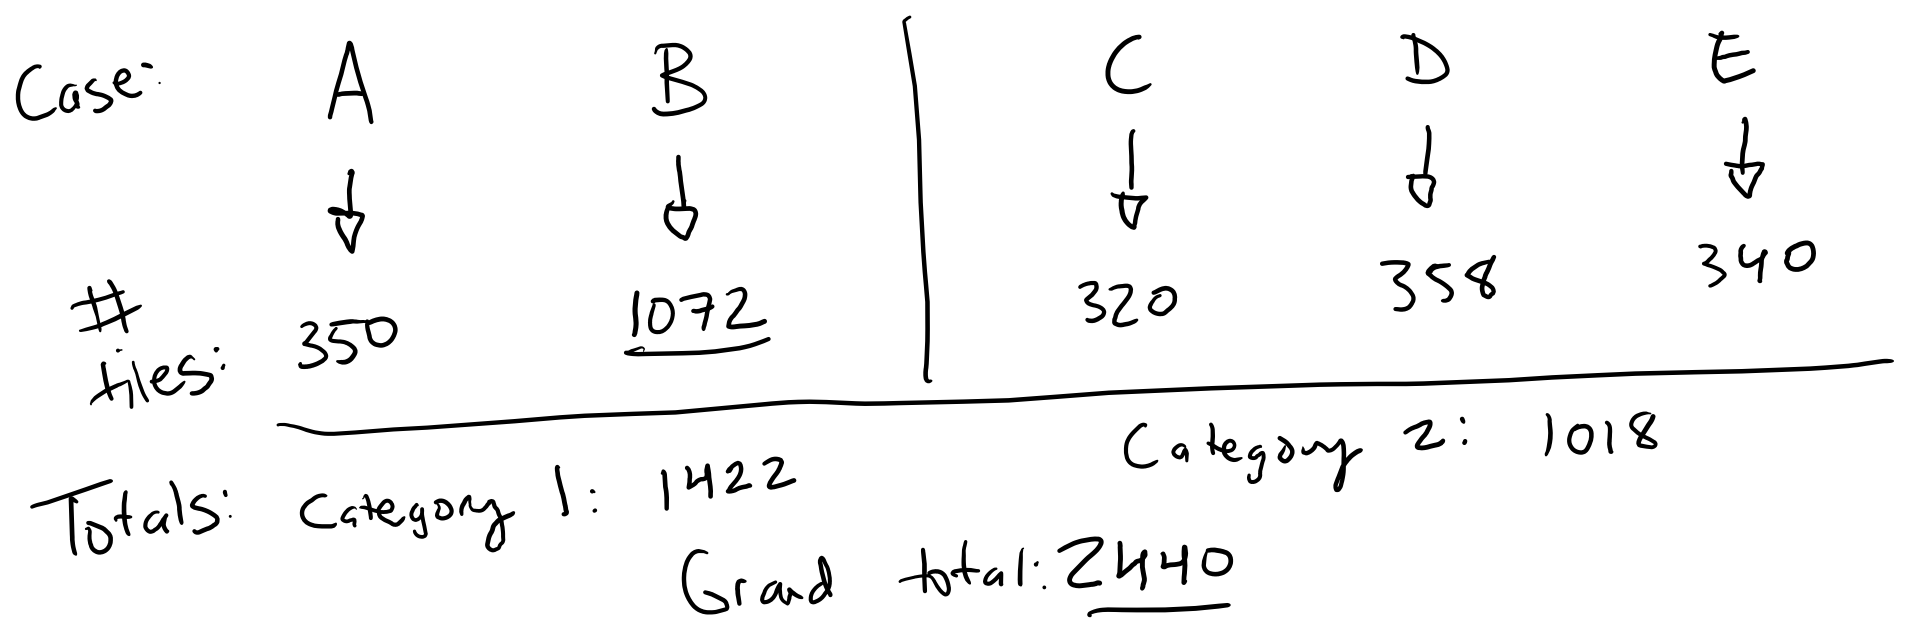 Case: A B C D E
# tiles: 350 1072 320 358 340
Totals: Category 1: 1422 Category 2: 1018
Grand total: 2440